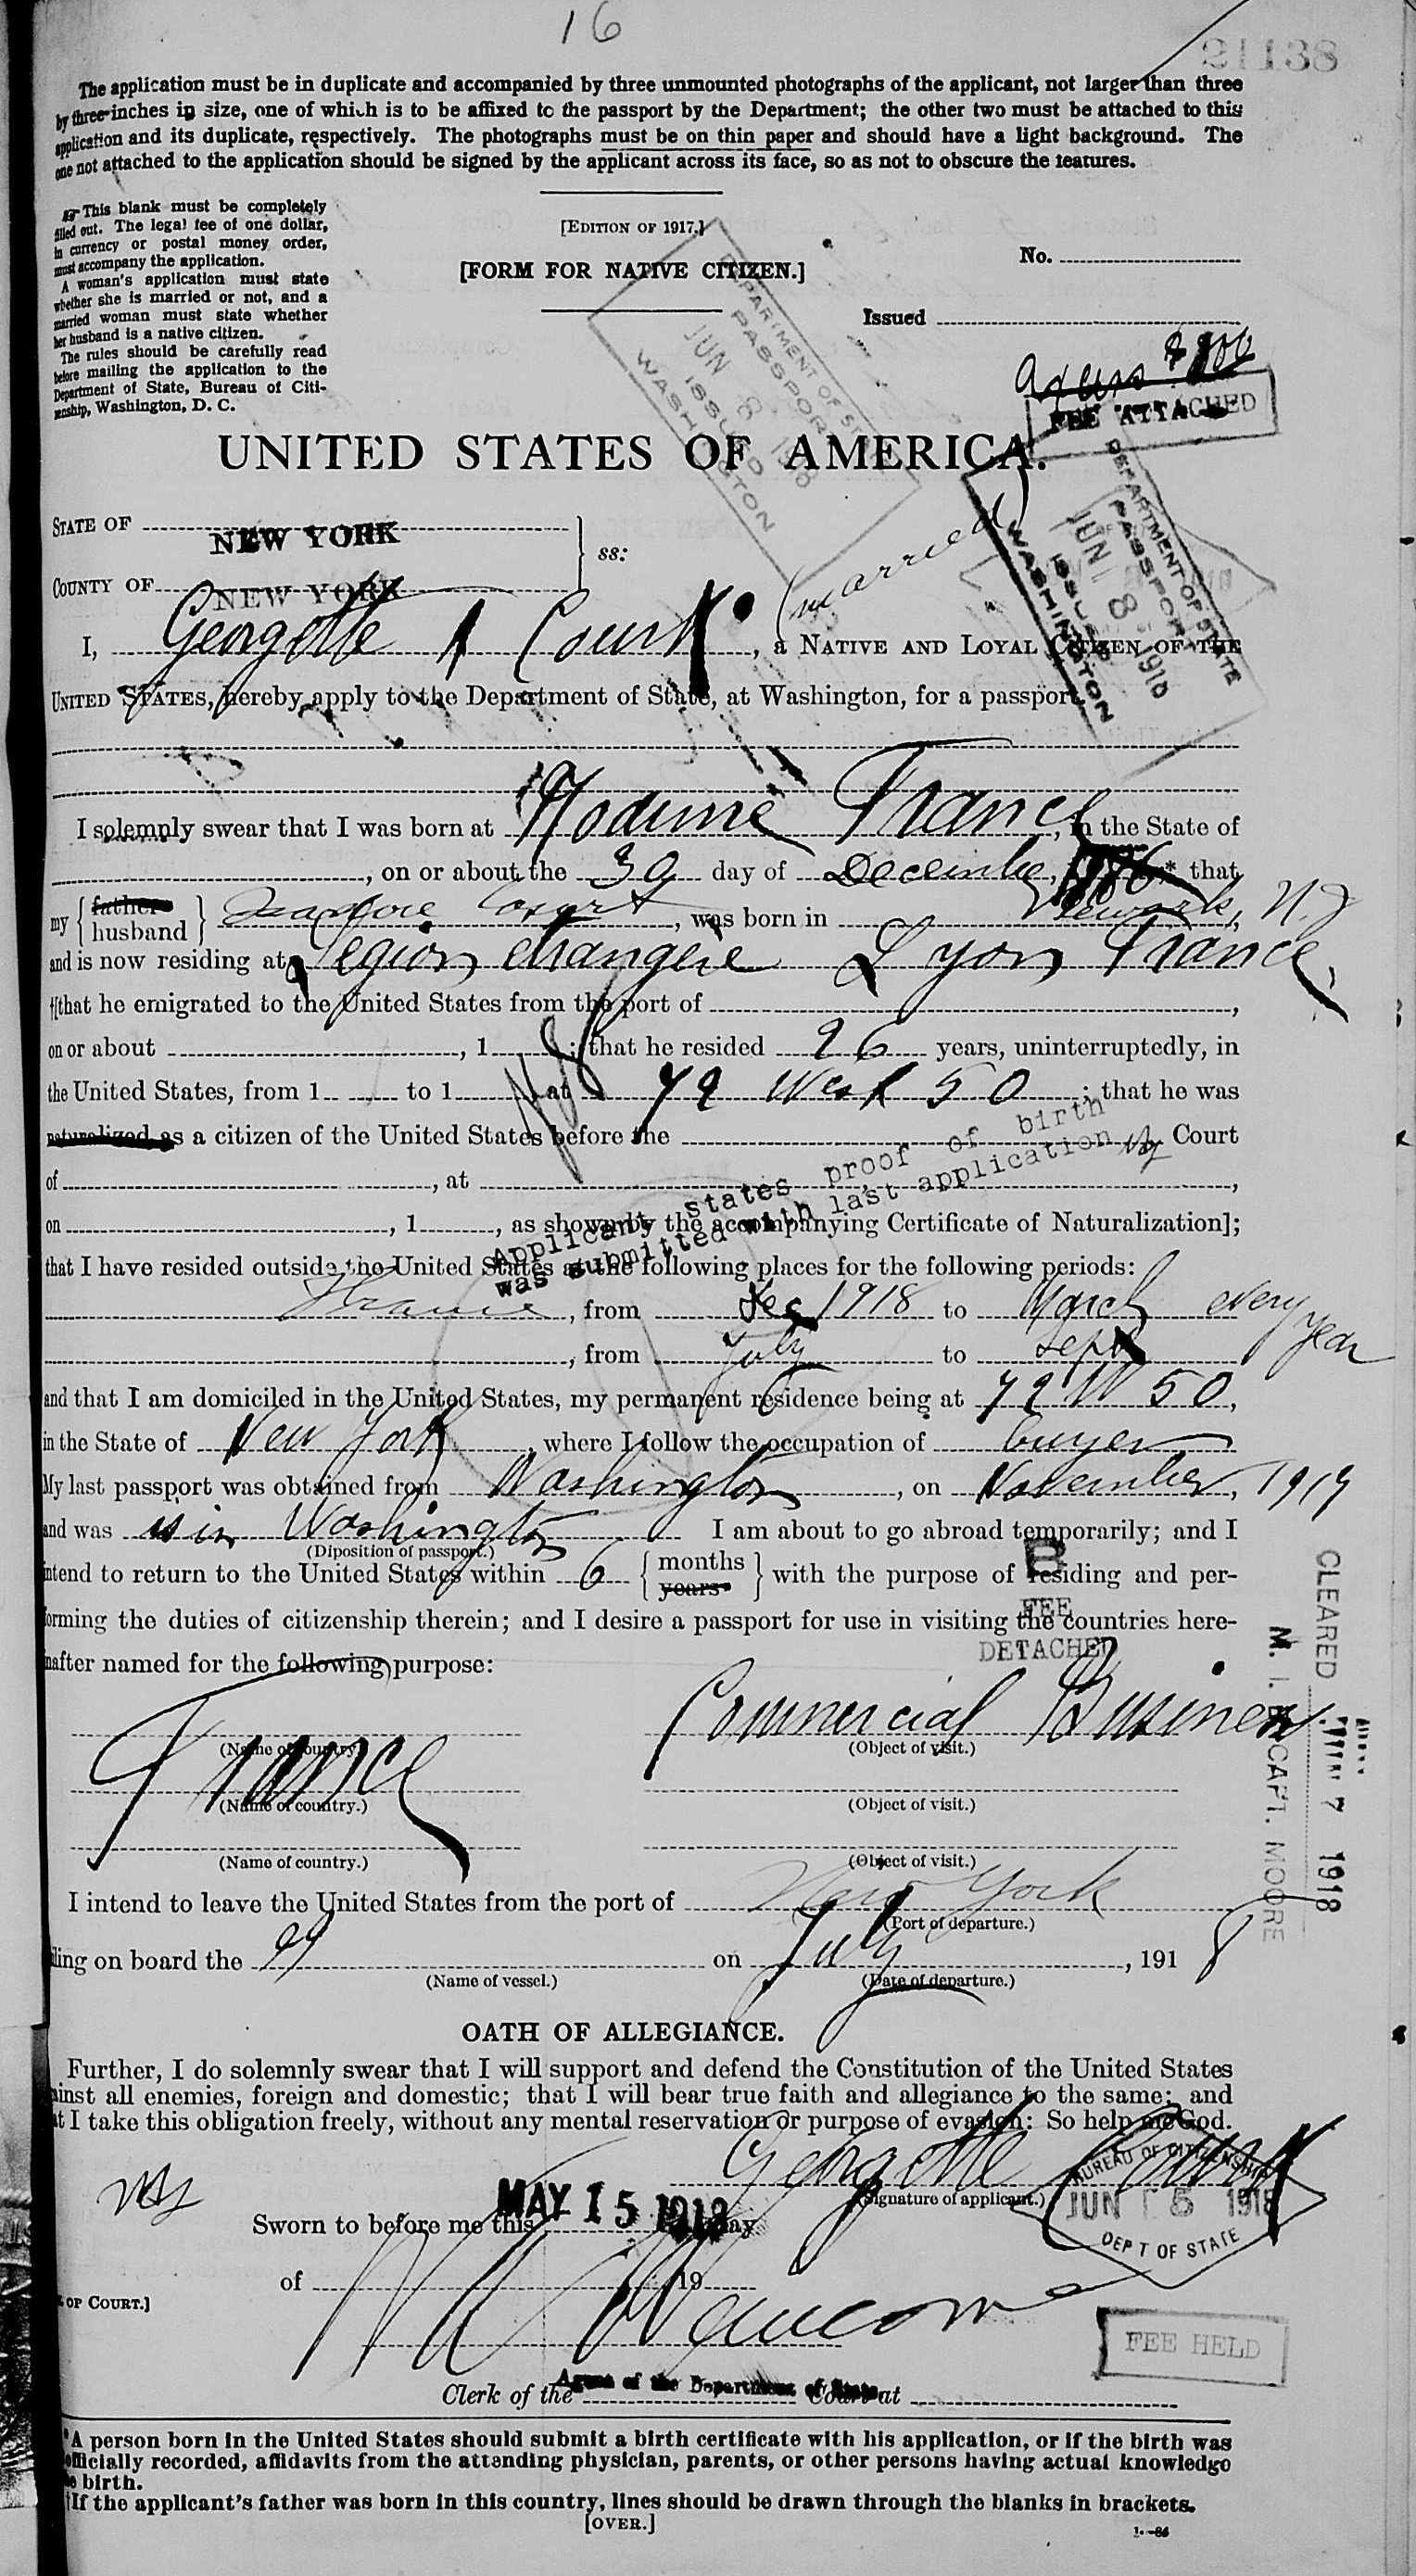 16
21138
The application must be in duplicate and accompanied by three unmounted photographs of the applicant, not larger than three
by three inches in size, one of which is to be affixed to the passport by the Department; the other two must be attached to this
application and its duplicate, respectively. The photographs must be on thin paper and should have a light background. The
one not attached to the application should be signed by the applicant across its face, so as not to obscure the features.
This blank must be completely
filled out. The legal fee of one dollar,
in currency or postal money order,
must accompany the application.
A woman's application must state
whether she is married or not, and a
married woman must state whether
her husband is a native citizen.
The rules should be carefully read
before mailing the application to the
Department of State, Bureau of Citi-
zenship, Washington, D. C.
[EDITION OF 1917.]
[FORM FOR NATIVE CITIZEN.]
No.
Issued
FEE ATTACHED
DEPARTMENT OF STATE
PASSPORT
JUN 8 1918
ISSUED
WASHINGTON
UNITED STATES OF AMERICA.
DEPARTMENT OF STATE
PASSPORT
JUN 8 1918
ISSUED
WASHINGTON
STATE OF NEW YORK
COUNTY OF NEW YORK
ss:
(married)
I, Georgette Court, a NATIVE AND LOYAL CITIZEN OF THE
UNITED STATES, hereby apply to the Department of State, at Washington, for a passport
I solemnly swear that I was born at France, in the State of
, on or about the 30 day of December, * that
my { father husband } Court, was born in Newark, N.J
and is now residing at Legion etrangere Lyon France,
†[that he emigrated to the United States from the port of ,
on or about , 1 ; that he resided 26 years, uninterruptedly, in
the United States, from 1 to 1 , at 72 West 50 ; that he was
naturalized as a citizen of the United States before the Court
of , at ,
on , 1 , as shown by the accompanying Certificate of Naturalization];
Applicant states proof of birth
was submitted with last application
that I have resided outside the United States at the following places for the following periods:
France, from Dec 1918 to March every year
, from July to Sept
and that I am domiciled in the United States, my permanent residence being at 72 W 50,
in the State of New York, where I follow the occupation of buyer
My last passport was obtained from Washington, on November, 1917
and was is in Washington I am about to go abroad temporarily; and I
(Diposition of passport.)
intend to return to the United States within 6 { months years } with the purpose of residing and per-
forming the duties of citizenship therein; and I desire a passport for use in visiting the countries here-
inafter named for the following purpose:
FEE
DETACHED
CLEARED
7 1918
M. I. CAPT. MOORE
France
Commercial Business
(Name of country.) (Object of visit.)
(Name of country.) (Object of visit.)
(Name of country.) (Object of visit.)
I intend to leave the United States from the port of New York
(Port of departure.)
ling on board the on July, 1918
(Name of vessel.) (Date of departure.)
OATH OF ALLEGIANCE.
Further, I do solemnly swear that I will support and defend the Constitution of the United States
ainst all enemies, foreign and domestic; that I will bear true faith and allegiance to the same; and
at I take this obligation freely, without any mental reservation or purpose of evasion: So help me God.
Georgette Court
(Signature of applicant.)
BUREAU OF CITIZENSHIP
JUN 5 1918
DEP'T OF STATE
Sworn to before me this MAY 15 1918 day
of 19
OF COURT.]
FEE HELD
Agent of the Department of State
Clerk of the Court at
*A person born in the United States should submit a birth certificate with his application, or if the birth was
officially recorded, affidavits from the attending physician, parents, or other persons having actual knowledge
e birth.
†If the applicant's father was born in this country, lines should be drawn through the blanks in brackets.
[OVER.]